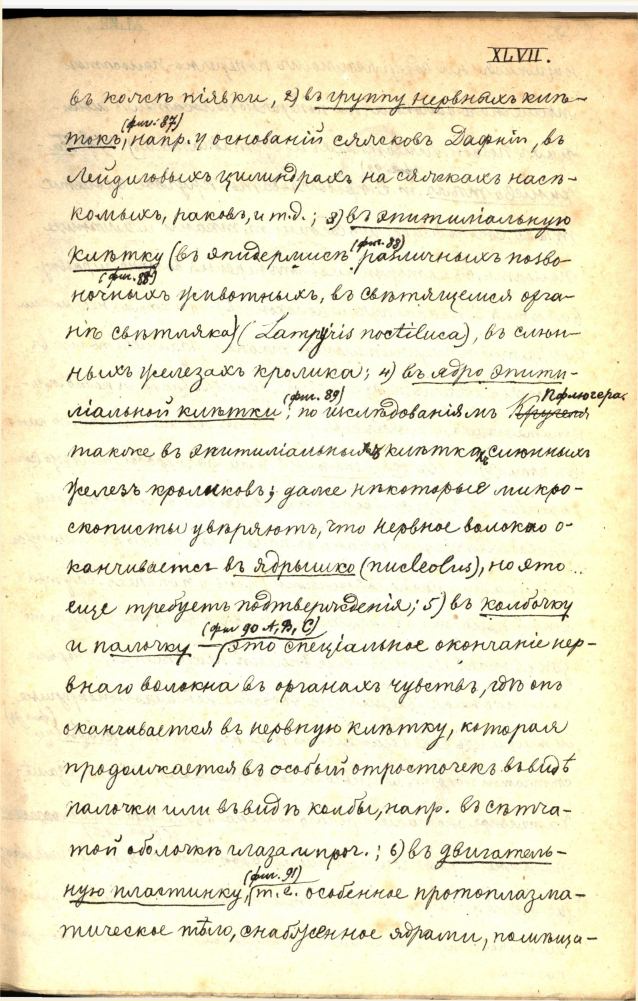 XLVII.
въ кожѣ піявки, 2) въ группу нервныхъ клѣ-
(фиг. 87)
токъ, напр. у основаній сяжковъ Дафніи, въ
Лейдиговыхъ цилиндрахъ на сяжкахъ насѣ-
комыхъ, раковъ, и т.д.; 3) въ эпителіальную
клѣтку (въ эпидермисѣ (фиг. 88) различныхъ позво-
(фиг. 88)
ночныхъ животныхъ, въ свѣтящемся орга-
нѣ свѣтляка) (Lampyris noctiluca), въ слюн-
ныхъ железахъ кролика; 4) въ ядро эпите-
ліальной клѣтки (фиг. 89); по изслѣдованіямъ Пфлюгера
также въ эпителіальныхъ клѣткахъ слюнныхъ
железъ кроликовъ; даже нѣкоторые микро-
скописты увѣряютъ, что нервное волокно о-
канчивается въ ядрышко (nucleolus), но это
еще требуетъ подтвержденія; 5) въ колбочку
(фиг 90 А, В, С)
и палочку — это спеціальное окончаніе нер-
внаго волокна въ органахъ чувствъ, гдѣ онъ
оканчивается въ нервную клѣтку, которая
продолжается въ особый отросточекъ въ видѣ
палочки или въ видѣ колбы, напр. въ сѣтча-
той оболочкѣ глаза и проч.; 6) въ двигатель-
(фиг. 91)
ную пластинку, т.е. особенное протоплазма-
тическое тѣло, снабженное ядрами, помѣща-